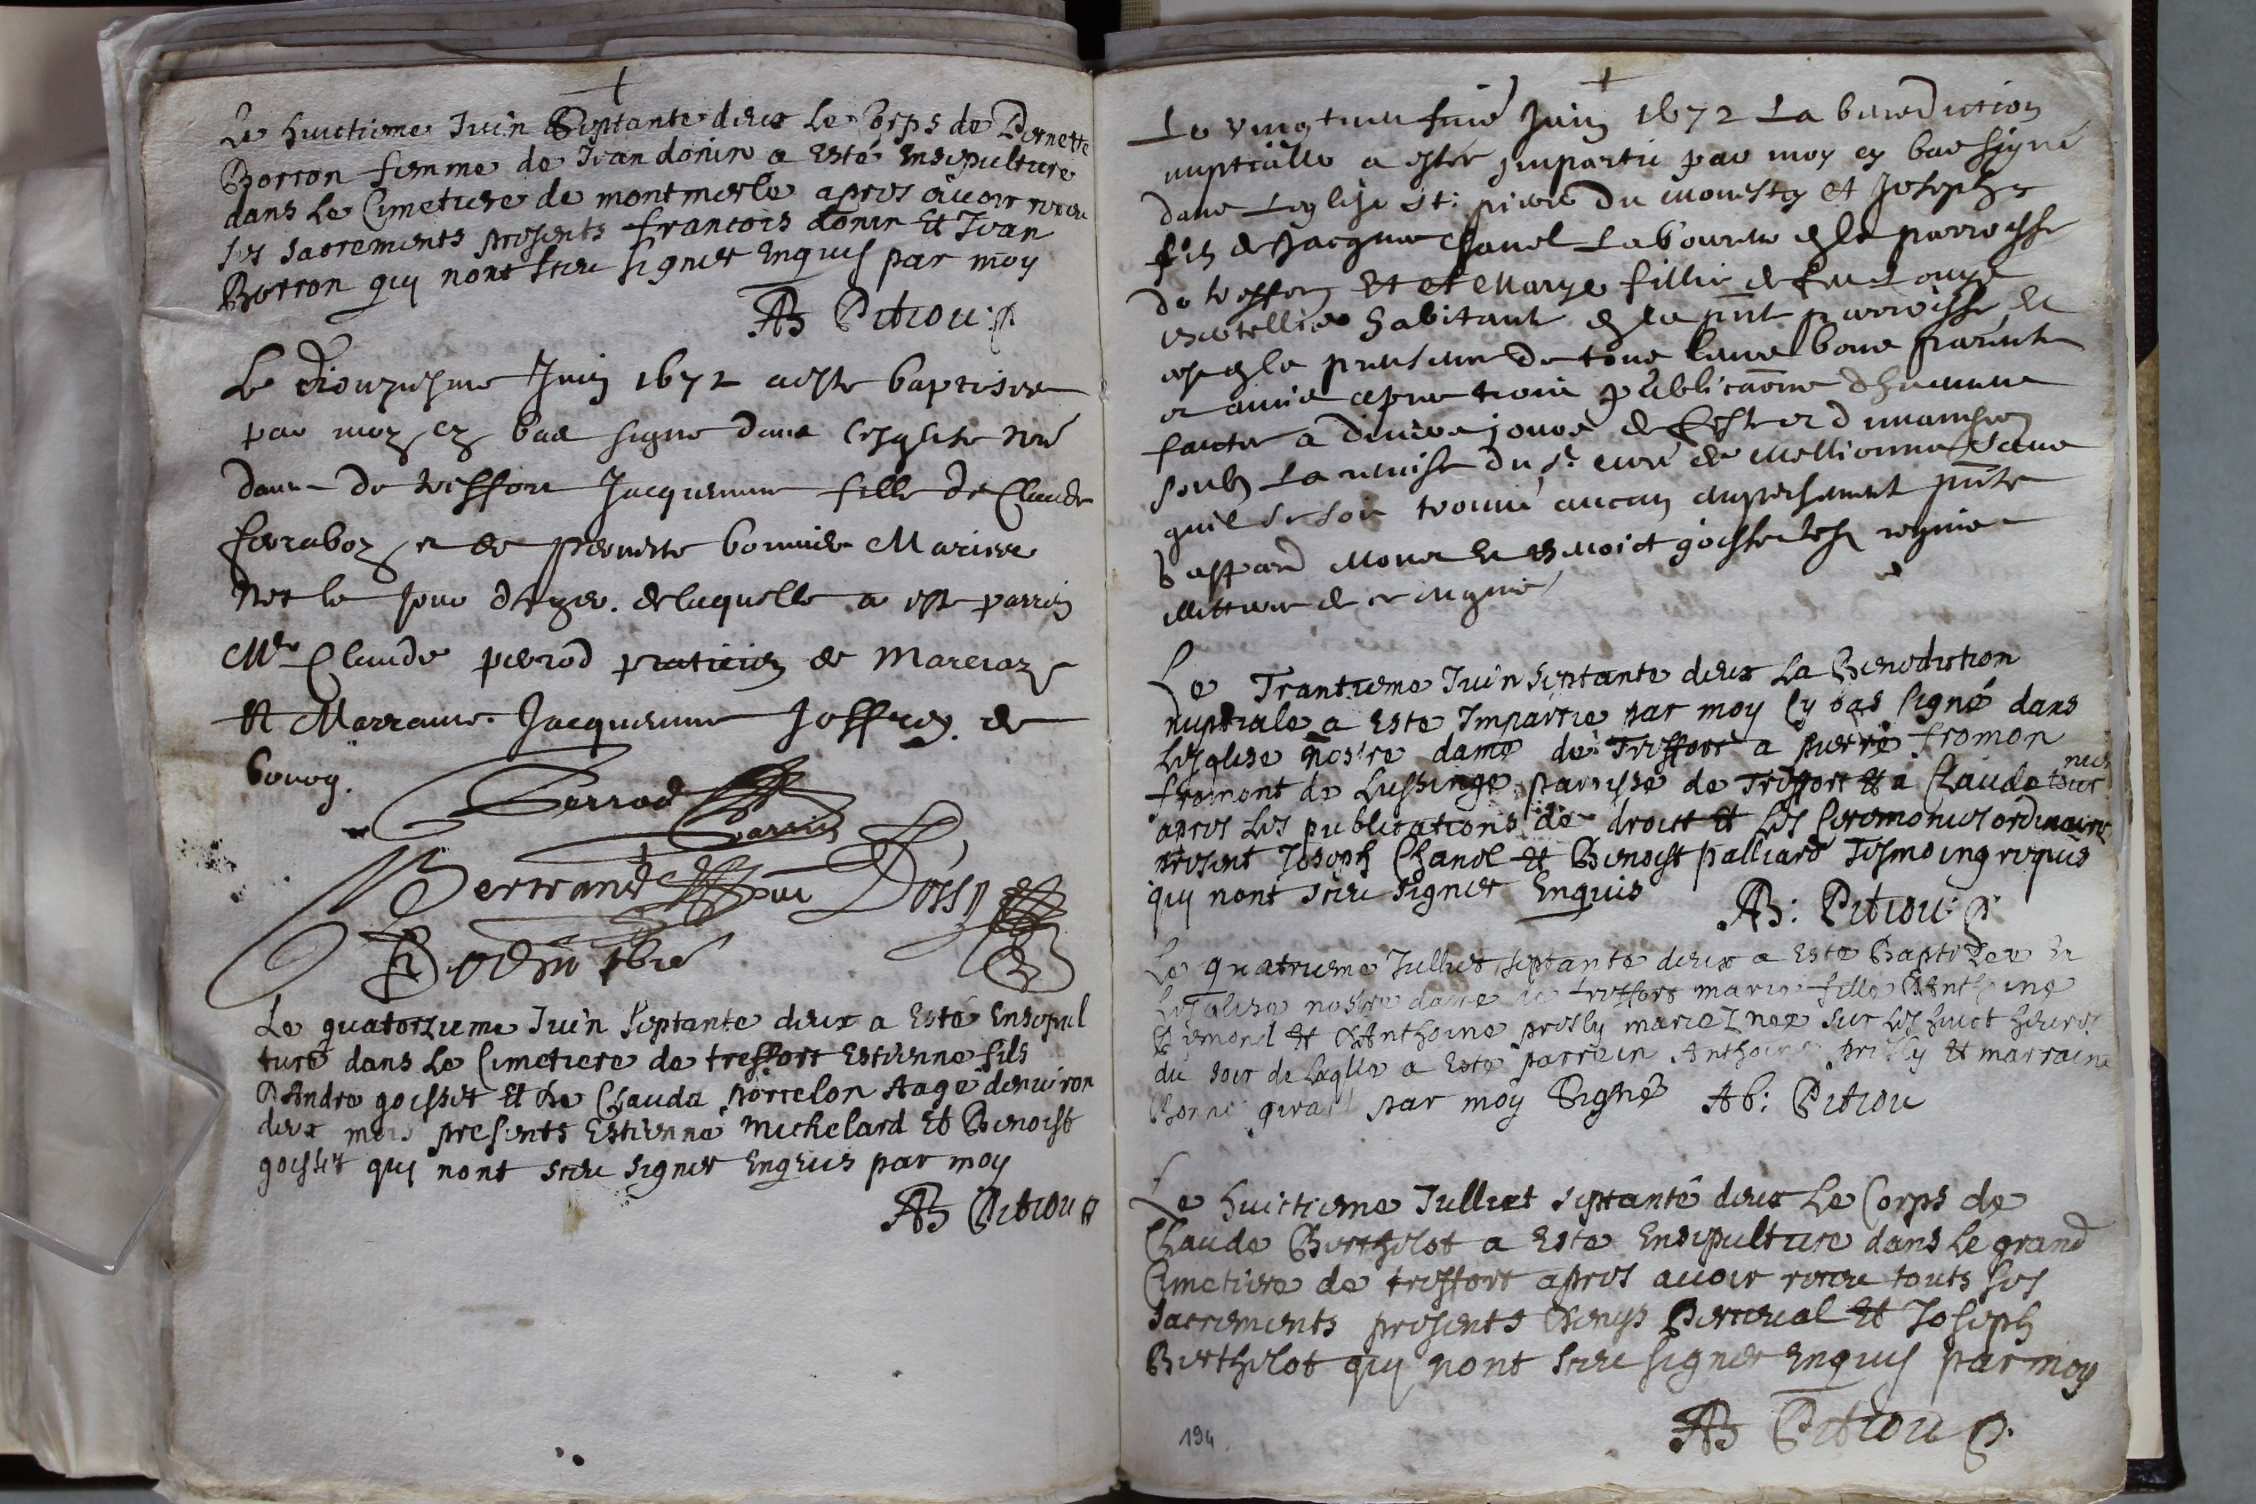 Le huictieme Juin Septante deux Le Corps de Pernette
Borron femme de Jean donin a Esté Ensepulturé
dans Le Cimetiere de montmerle apres avoir receu
ses sacrements presents francois donin Et Jean
Borron quy nont sceu signer Enquis par moy
AB Pitiou
Le Douziesme Juin 1672 a este baptisee
par moy cy bas signe dans lesglise nre
dame de treffort Jacquemine fille de Claude
ferraboz et de pernette bonnider Mariee
nee le jour dhyer. de laquelle a este parrin
Mre Claude perrod praticien de Marciaz
Et Marraine Jacquemine Joffrey de
bourg.
Perrod
Parrin
Bertrand Dossy
Le quatorzieme Juin Septante deux a Esté Ensepul
turé dans Le Cimetiere de treffort Estienne fils
DAndre goisset Et De Clauda porcelon Aagé denuiron
deux mois presents Estienne michelard Et Benoist
goisset quy nont sceu signer Enquis par moy
AB Pitiou
Le vingt neufuie Juin 1672 La benediction
nuptialle a estée impartie par moy cy bas signé
dans Leglise st: pierre du monestey et Joseph
fils de Jacque Chanel Laboureur de la parroisse
de treffort Et et Marye fillie de feu Louys
habitant de la pnt parroisse et
ce en la presence de tous leurs bons parents
et amis apres trois publications
faictes a divers jours de feste et dimanche
soubz La remise du sr curé de Meillionna sans
quil se soit trouué aucun empeschement pnts
gaspard Et Benoict goisset
illitteres de ce enquis
Le Trantieme Juin Septante deux La Benediction
nuptiale a Este Impartie par moy Cy bas signé dans
Lesglise nostre dame de Treffort a pierre fromon
fromont de Lussinge parrisse de Treffort Et a Claude tour
nier
apres Les publications de droict Et Les Ceremonies ordinaires
present Joseph Chanel Et Benoist palliard Tesmoing requis
quy nont sceu signer Enquis
AB: Pitiou
Le quatrieme Julliet septante deux a Este Baptizée En
LEsglise nostre dame de treffort marie fille DAnthoine
Et DAnthoine presly mariez nee sur les huict heures
du soir de laqlle a Este parrein Anthoine presly Et marraine
par moy Signé Ab: Pitiou
Le huictieme Julliet septante deux Le Corps de
Claude Berthelot a Este Ensepulturé dans Le grand
Cimetiere de treffort apres avoir receu touts ses
sacrements presents Denys Perceval Et Joseph
Berthelot quy nont sceu signer Enquis par moy
AB Pitiou
194